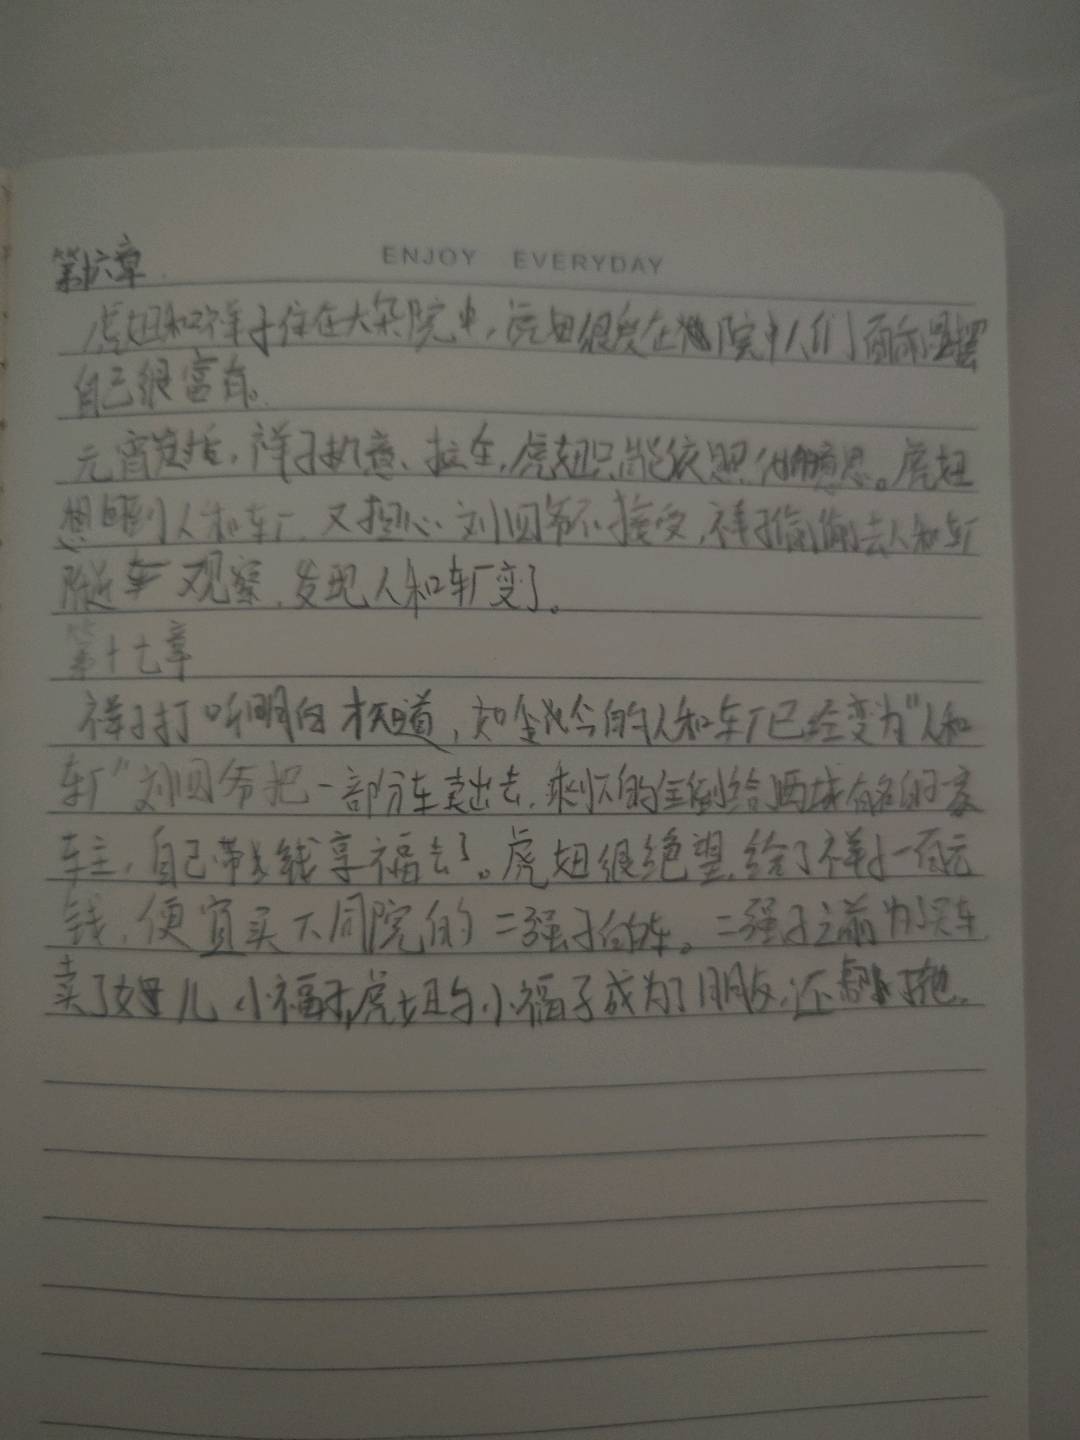 ENJOY EVERYDAY
第十六章
虎妞和祥子住在大杂院中,虎妞很爱在院中人们面前显摆
自己很富有。
元宵过后,祥子执意拉车,虎妞只能依照他的意思。虎妞
想回到人和车厂,又担心刘四爷不接受,祥子偷偷去人和车厂
附近车厂观察,发现人和车厂变了。
第十七章
祥子打听明白才知道,如今的人和车厂已经变为"人和
车厂"刘四爷把一部分车卖出去,剩下的全倒给西城有名的一家
车主,自己带着钱享福去了。虎妞很绝望,给了祥子一百元
钱,便宜买下同院的二强子的车。二强子之前为买车
卖了女儿小福子,虎妞与小福子成为了朋友,还